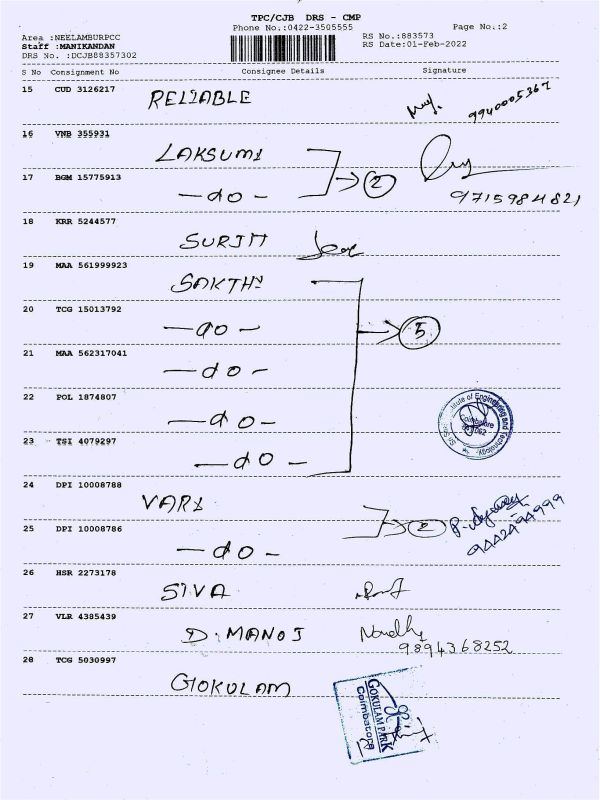 TPC/CJB DRS - CMP
Phone No.:0422-3505555
Page No.:2
Area :NEELAMBURPCC
Staff :MANIKANDAN
DRS No. :DCJB88357302
RS No.:883573
RS Date:01-Feb-2022
S No Consignment No Consignee Details Signature
15 CUD 3126217 RELIABLE 9940005367
16 VNB 355931 LAKSUMI
17 BGM 15775913 —do— 2 9715984821
18 KRR 5244577 SURJIT
19 MAA 561999923 SAKTHI
20 TCG 15013792 —do— 5
21 MAA 562317041 —do—
22 POL 1874807 —do—
23 TSI 4079297 —do—
Institute of Engineering and Technology
Coimbatore
24 DPI 10008788 VARI
25 DPI 10008786 —do— 2 9442494999
26 HSR 2273178 SIVA
27 VLR 4385439 D. MANOJ
9894368252
28 TCG 5030997 GOKULAM
GOKULAM PARK
Coimbatore